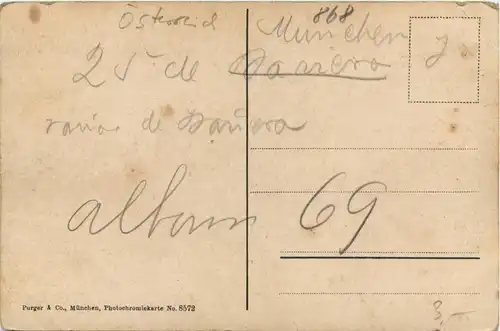 Österreich
868
München
25 de Baviera
varios de Baviera
album
69
Purger & Co., München, Photochromiekarte No. 8572
3,—